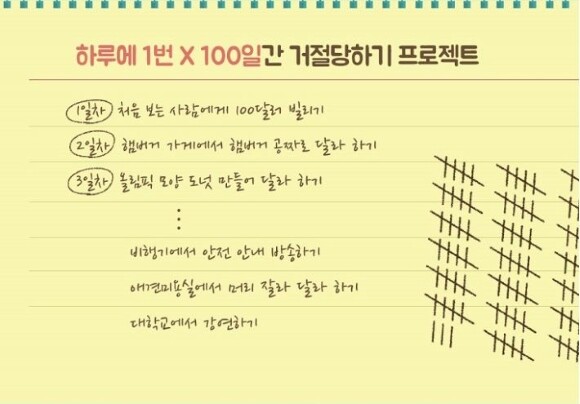 하루에 1번 X 100일간 거절당하기 프로젝트
1일차 처음 보는 사람에게 100달러 빌리기
2일차 햄버거 가게에서 햄버거 공짜로 달라 하기
3일차 올림픽 모양 도넛 만들어 달라 하기
비행기에서 안전 안내 방송하기
애견미용실에서 머리 잘라 달라 하기
대학교에서 강연하기